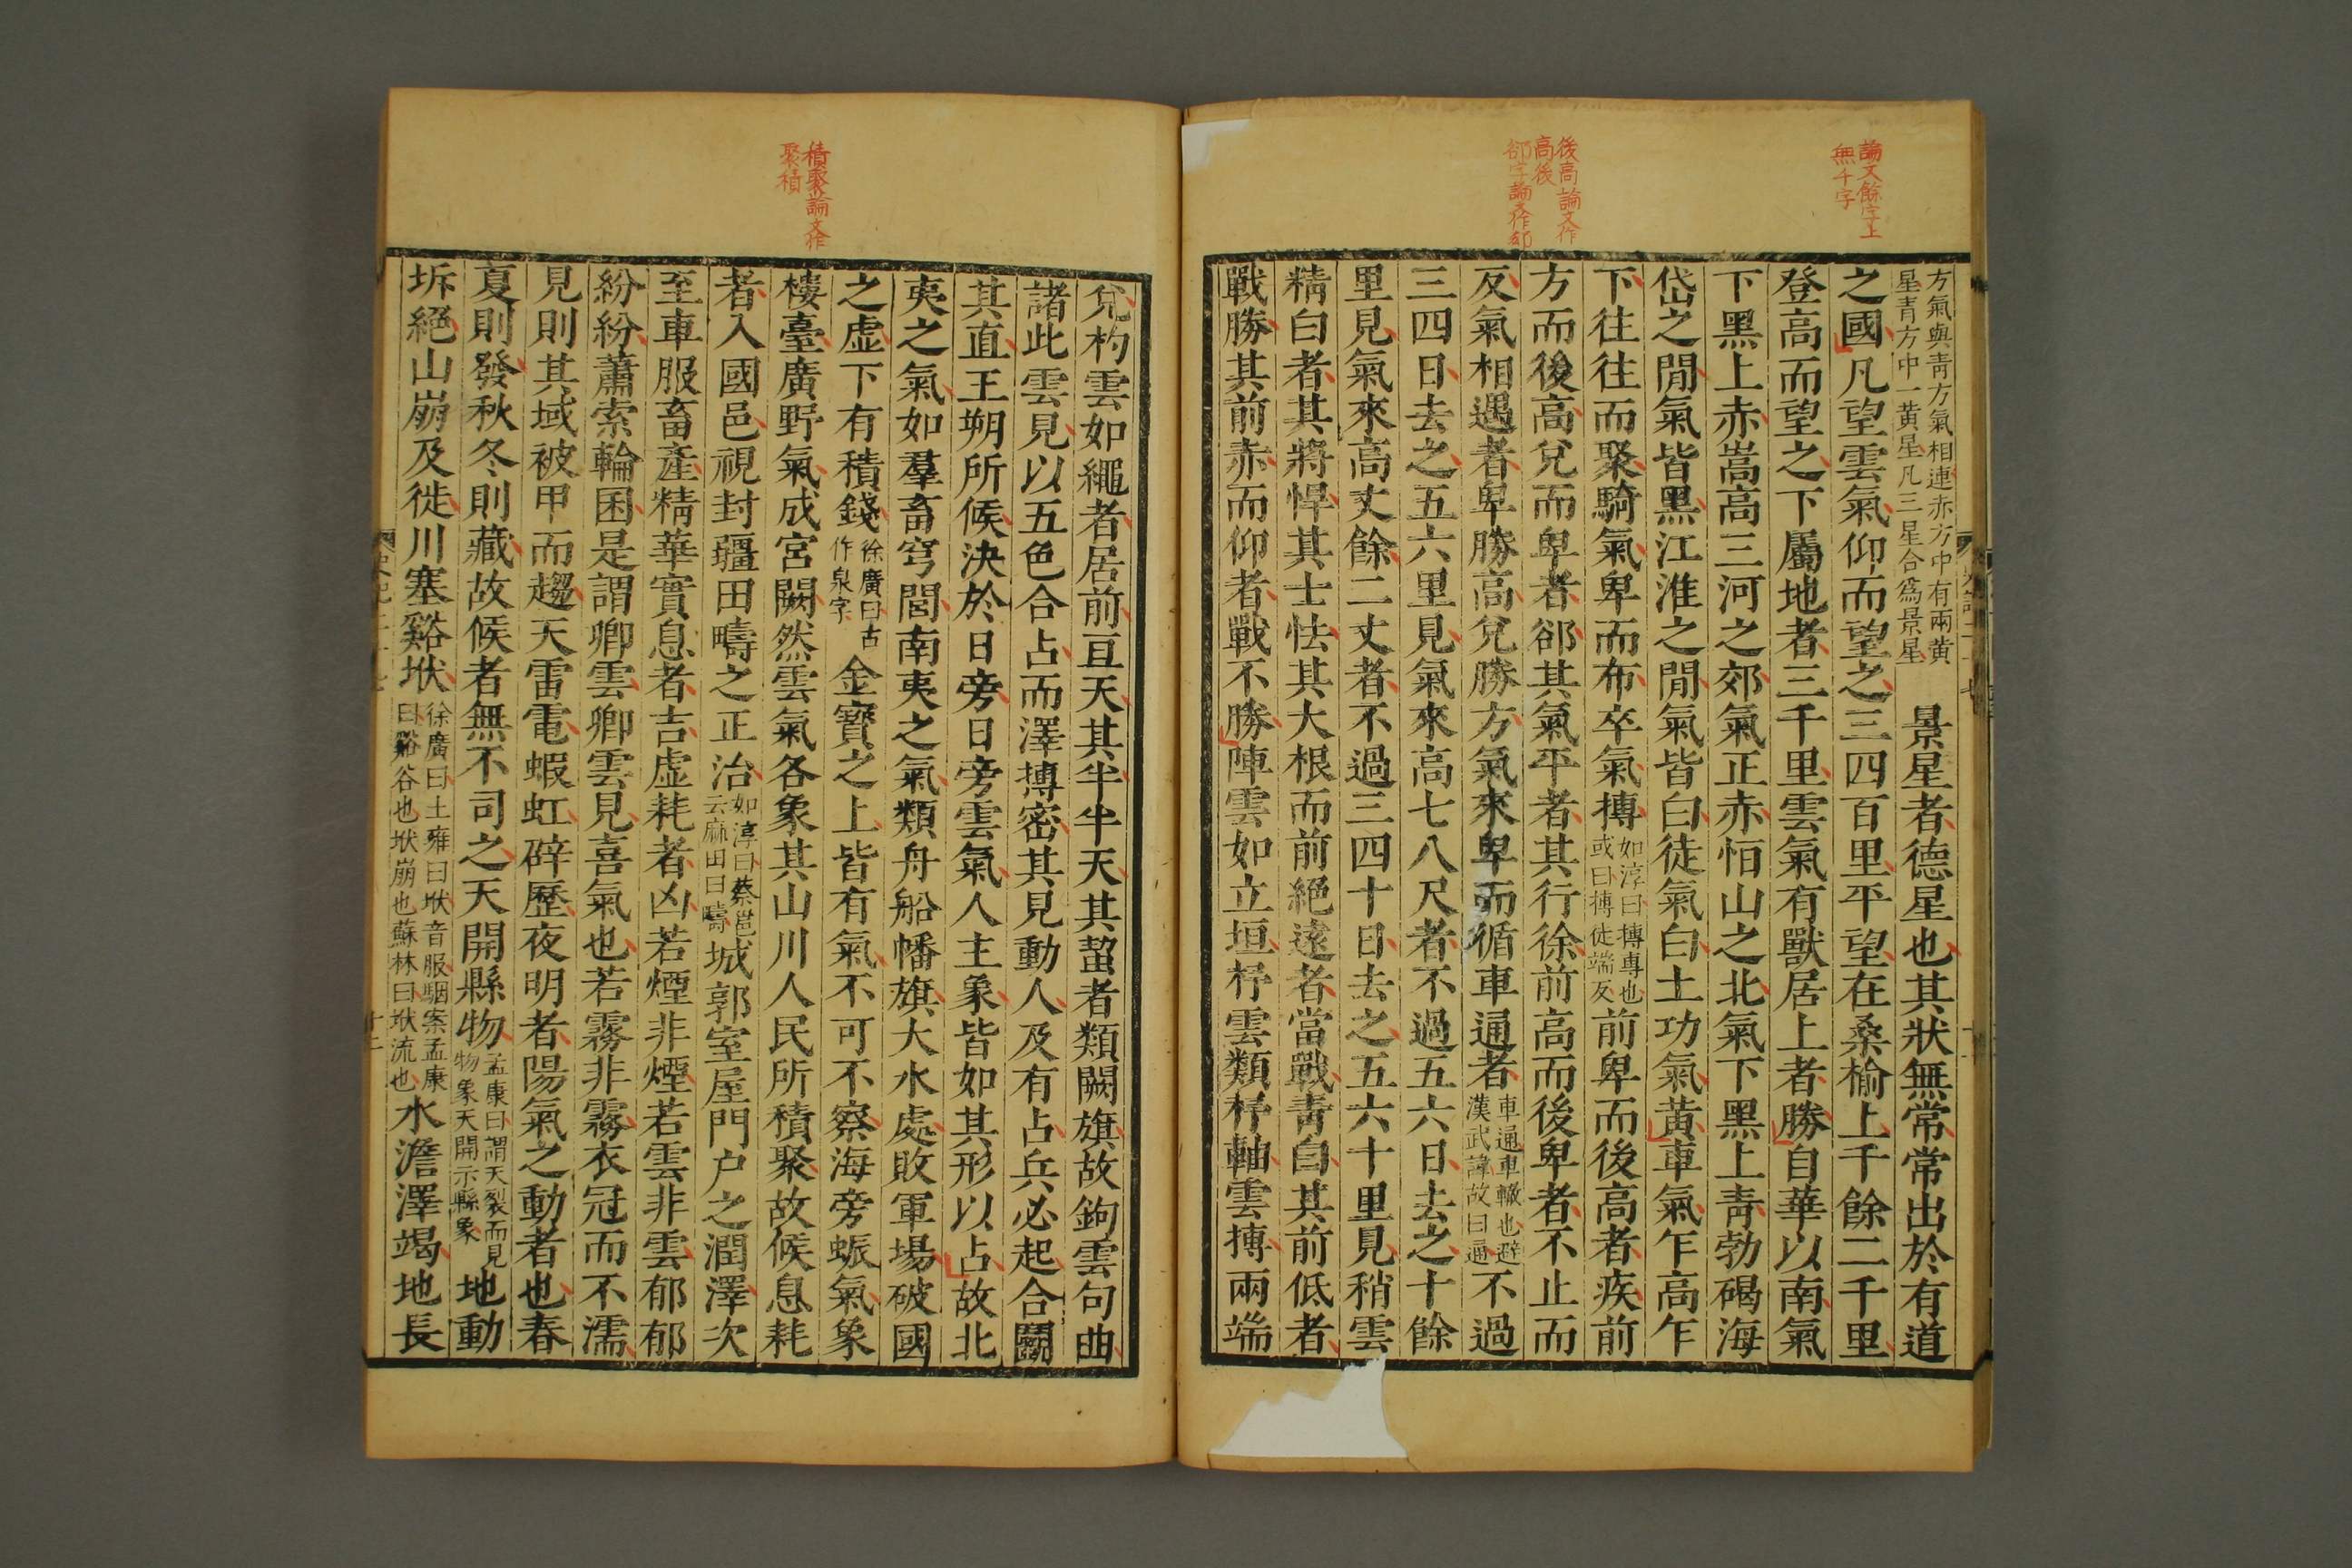 論文餘字上
無千字
後高論文作
高後
郤字論文作却
方氣與靑方氣相連赤方中有兩黃
星青方中一黄星凡三星合爲景星
景星者德星也其狀無常常出於有道
之國凡望雲氣仰而望之三四百里平望在桑榆上千餘二千里
登高而望之下屬地者三千里雲氣有獸居上者勝自華以南氣
下黑上赤嵩高三河之郊氣正赤恒山之北氣下黑上靑勃碣海
岱之閒氣皆黑江淮之閒氣皆白徒氣白土功氣黃車氣乍高乍
下往往而聚騎氣卑而布卒氣摶
如淳曰摶專也
或曰摶徒端反
前卑而後高者疾前
方而後高兌而卑者郤其氣平者其行徐前高而後卑者不止而
反氣相遇者卑勝高兌勝方氣來卑而循車通者
車通車轍也避
漢武諱故曰通
不過
三四日去之五六里見氣來高七八尺者不過五六日去之十餘
里見氣來高丈餘二丈者不過三四十日去之五六十里見稍雲
精白者其將悍其士怯其大根而前絕遠者當戰靑白其前低者
戰勝其前赤而仰者戰不勝陣雲如立垣杼雲類杼軸雲摶兩端
積聚論文作
聚積
兌杓雲如繩者居前亘天其半半天其蛪者類闕旗故鉤雲句曲
諸此雲見以五色合占而澤摶密其見動人及有占兵必起合鬭
其直王朔所候決於日旁日旁雲氣人主象皆如其形以占故北
夷之氣如羣畜穹閭南夷之氣類舟船幡旗大水處敗軍場破國
之虛下有積錢
徐廣曰古
作泉字
金寶之上皆有氣不可不察海旁蜄氣象
樓臺廣野氣成宮闕然雲氣各象其山川人民所積聚故候息耗
者入國邑視封疆田疇之正治
如淳曰蔡邕
云麻田曰疇
城郭室屋門户之潤澤次
至車服畜產精華實息者吉虛耗者凶若煙非煙若雲非雲郁郁
紛紛蕭索輪囷是謂卿雲卿雲見喜氣也若霧非霧衣冠而不濡
見則其域被甲而趨天雷電蝦虹辟歷夜明者陽氣之動者也春
夏則發秋冬則藏故候者無不司之天開縣物
孟康曰謂天裂而見
物象天開示縣象
地動
坼絕山崩及徙川塞谿垘
徐廣曰土雍曰垘音服駰案孟康
曰谿谷也垘崩也蘇林曰垘流也
水澹澤竭地長